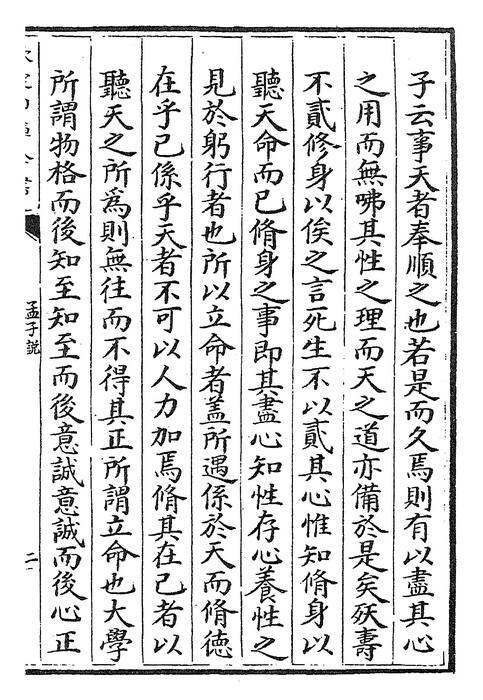 子云事天者奉順之也若是而久焉則有以盡其心
之用而無咈其性之理而天之道亦備於是矣殀壽
不貳修身以俟之言死生不以貳其心惟知脩身以
聽天命而已脩身之事即其盡心知性存心養性之
見於躬行者也所以立命者蓋所遇係於天而脩徳
在乎已係乎天者不可以人力加焉脩其在已者以
聽天之所爲則無往而不得其正所謂立命也大學
所謂物格而後知至知至而後意誠意誠而後心正
孟子説
二